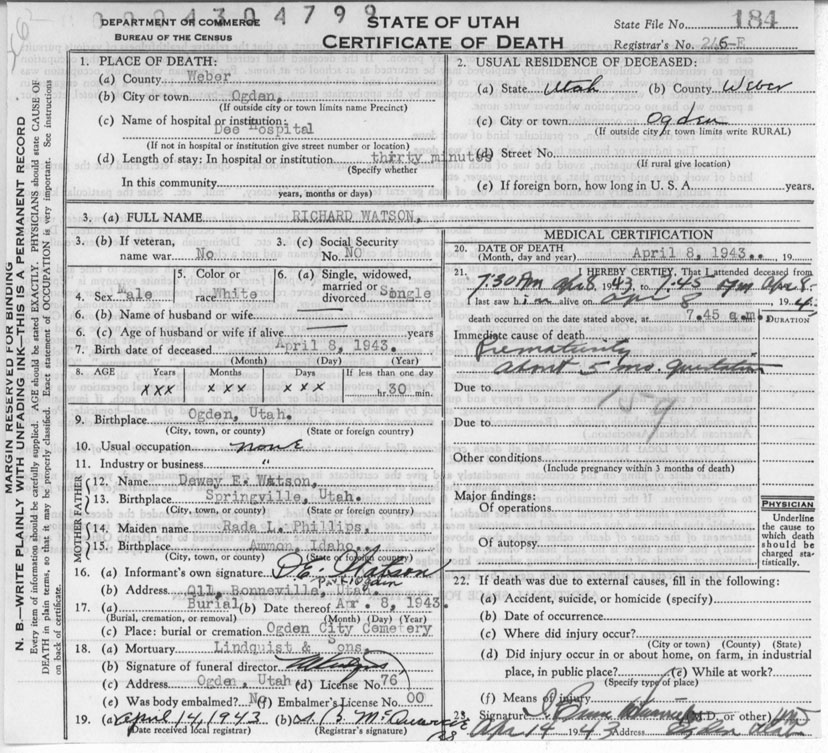 0004304799
DEPARTMENT OF COMMERCE
BUREAU OF THE CENSUS
STATE OF UTAH
CERTIFICATE OF DEATH
State File No. 184
Registrar's No. 216-E
MARGIN RESERVED FOR BINDING
N. B.—WRITE PLAINLY WITH UNFADING INK—THIS IS A PERMANENT RECORD
Every item of information should be carefully supplied. AGE should be stated EXACTLY. PHYSICIANS should state CAUSE OF
DEATH in plain terms, so that it may be properly classified. Exact statement of OCCUPATION is very important. See instructions
on back of certificate.
1. PLACE OF DEATH:
(a) County Weber
(b) City or town Ogden,
(If outside city or town limits name Precinct)
(c) Name of hospital or institution:
Dee Hospital
(If not in hospital or institution give street number or location)
(d) Length of stay: In hospital or institution thirty minutes
(Specify whether
In this community
years, months or days)
2. USUAL RESIDENCE OF DECEASED:
(a) State Utah (b) County Weber
(c) City or town Ogden
(If outside city or town limits write RURAL)
(d) Street No.
(If rural give location)
(e) If foreign born, how long in U. S. A. years.
3. (a) FULL NAME RICHARD WATSON,
3. (b) If veteran, name war No
3. (c) Social Security No. NO
4. Sex Male
5. Color or race White
6. (a) Single, widowed, married or divorced Single
6. (b) Name of husband or wife
6. (c) Age of husband or wife if alive years
7. Birth date of deceased April 8, 1943.
(Month) (Day) (Year)
8. AGE Years Months Days If less than one day
xxx xxx xxx hr. 30 min.
9. Birthplace Ogden, Utah.
(City, town, or county) (State or foreign country)
10. Usual occupation none
11. Industry or business "
FATHER
12. Name Dewey E. Watson,
13. Birthplace Springville, Utah.
(City, town, or county) (State or foreign country)
MOTHER
14. Maiden name Rada L. Phillips,
15. Birthplace Ammon, Idaho.
(City, town, or county) (State or foreign country)
16. (a) Informant's own signature D.E. Watson
(b) Address Bonneville, Utah.
17. (a) Burial (b) Date thereof Apr. 8, 1943.
(Burial, cremation, or removal) (Month) (Day) (Year)
(c) Place: burial or cremation Ogden City Cemetery
18. (a) Mortuary Lindquist & Sons,
(b) Signature of funeral director
(c) Address Ogden, Utah (d) License No. 76
(e) Was body embalmed? No (f) Embalmer's License No. 00
19. (a) April 14, 1943 (b)
(Date received local registrar) (Registrar's signature)
MEDICAL CERTIFICATION
20. DATE OF DEATH
(Month, day and year) April 8, 1943. 19
21. I HEREBY CERTIFY, That I attended deceased from
7:30 Am Apr 8, 1943, to 7:45 Am Apr 8-
I last saw him alive on Apr 8 194
death occurred on the date stated above, at 7.45 a.m. DURATION
Immediate cause of death
Prematurity
about 5 mo. gestation
Due to
159
Due to
Other conditions
(Include pregnancy within 3 months of death)
Major findings:
Of operations
Of autopsy
PHYSICIAN
Underline
the cause to
which death
should be
charged sta-
tistically.
22. If death was due to external causes, fill in the following:
(a) Accident, suicide, or homicide (specify)
(b) Date of occurrence
(c) Where did injury occur?
(City or town) (County) (State)
(d) Did injury occur in or about home, on farm, in industrial
place, in public place? (e) While at work?
(Specify type of place)
(f) Means of injury
23. Signature (M.D. or other)
Apr 14 1943 Address Ogden Utah